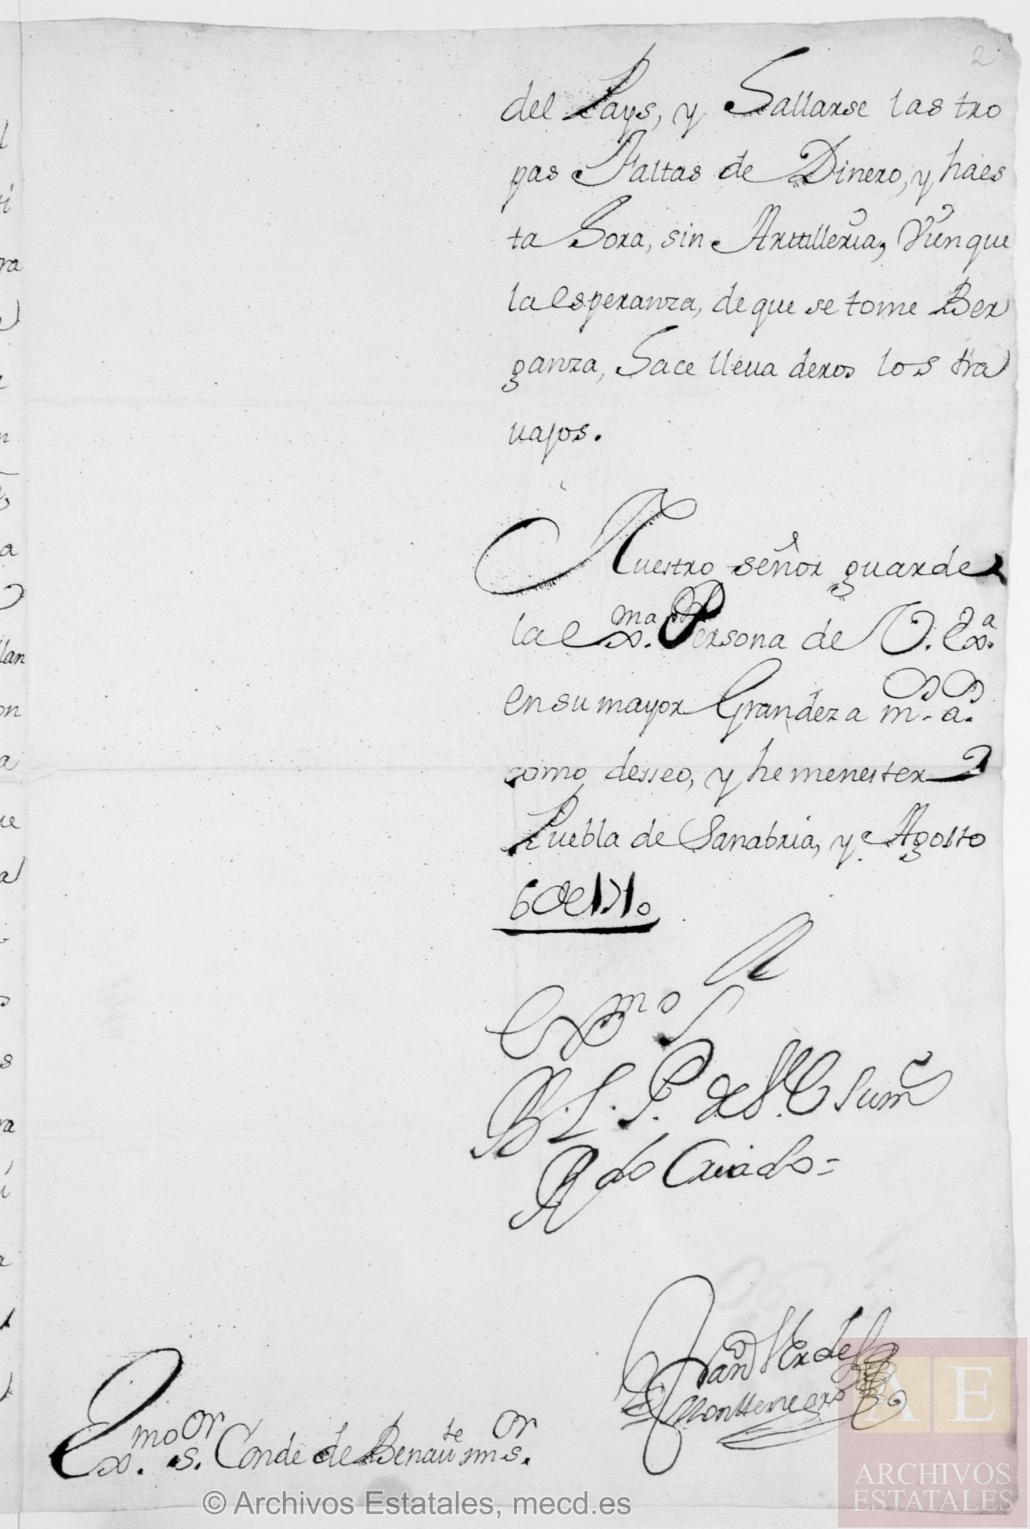 2
del Pays, y Hallarse las tro
pas Faltas de Dinero, y haes
ta Hora, sin Arttilleria, Aunque
la esperanza, de que se tome Ber
ganza, Hace lleua deros los tra
uajos.
Nuestro señor guarde
la exma. Persona de V. Exa.
en su mayor Grandeza ms. as.
como desseo, y he menester
Puebla de Sanabria, y Agosto
6 de 1710
Exmo Sr
B. L. P. de V. E. su mr
Rdo Criado =
Juan Verde
Monttenegro
Exmo. sor. Conde de Benaute mi sor.
© Archivos Estatales, mecd.es
AE
ARCHIVOS
ESTATALES